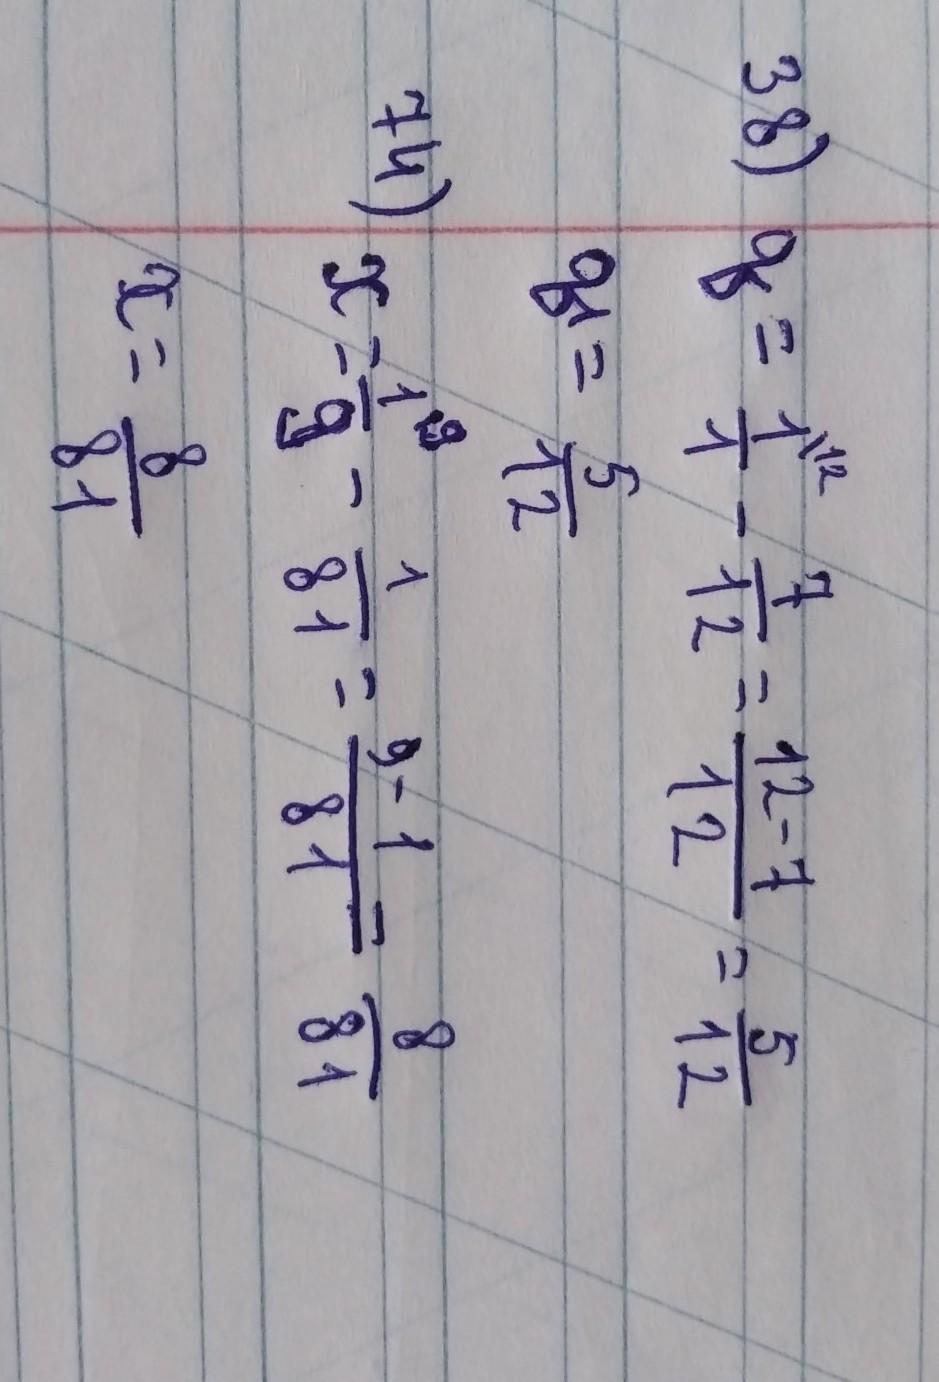 38) y = 1/1 ^12 - 7/12 = 12-7/12 = 5/12
y = 5/12
74) x = 1/9 ^9 - 1/81 = 9-1/81 = 8/81
x = 8/81